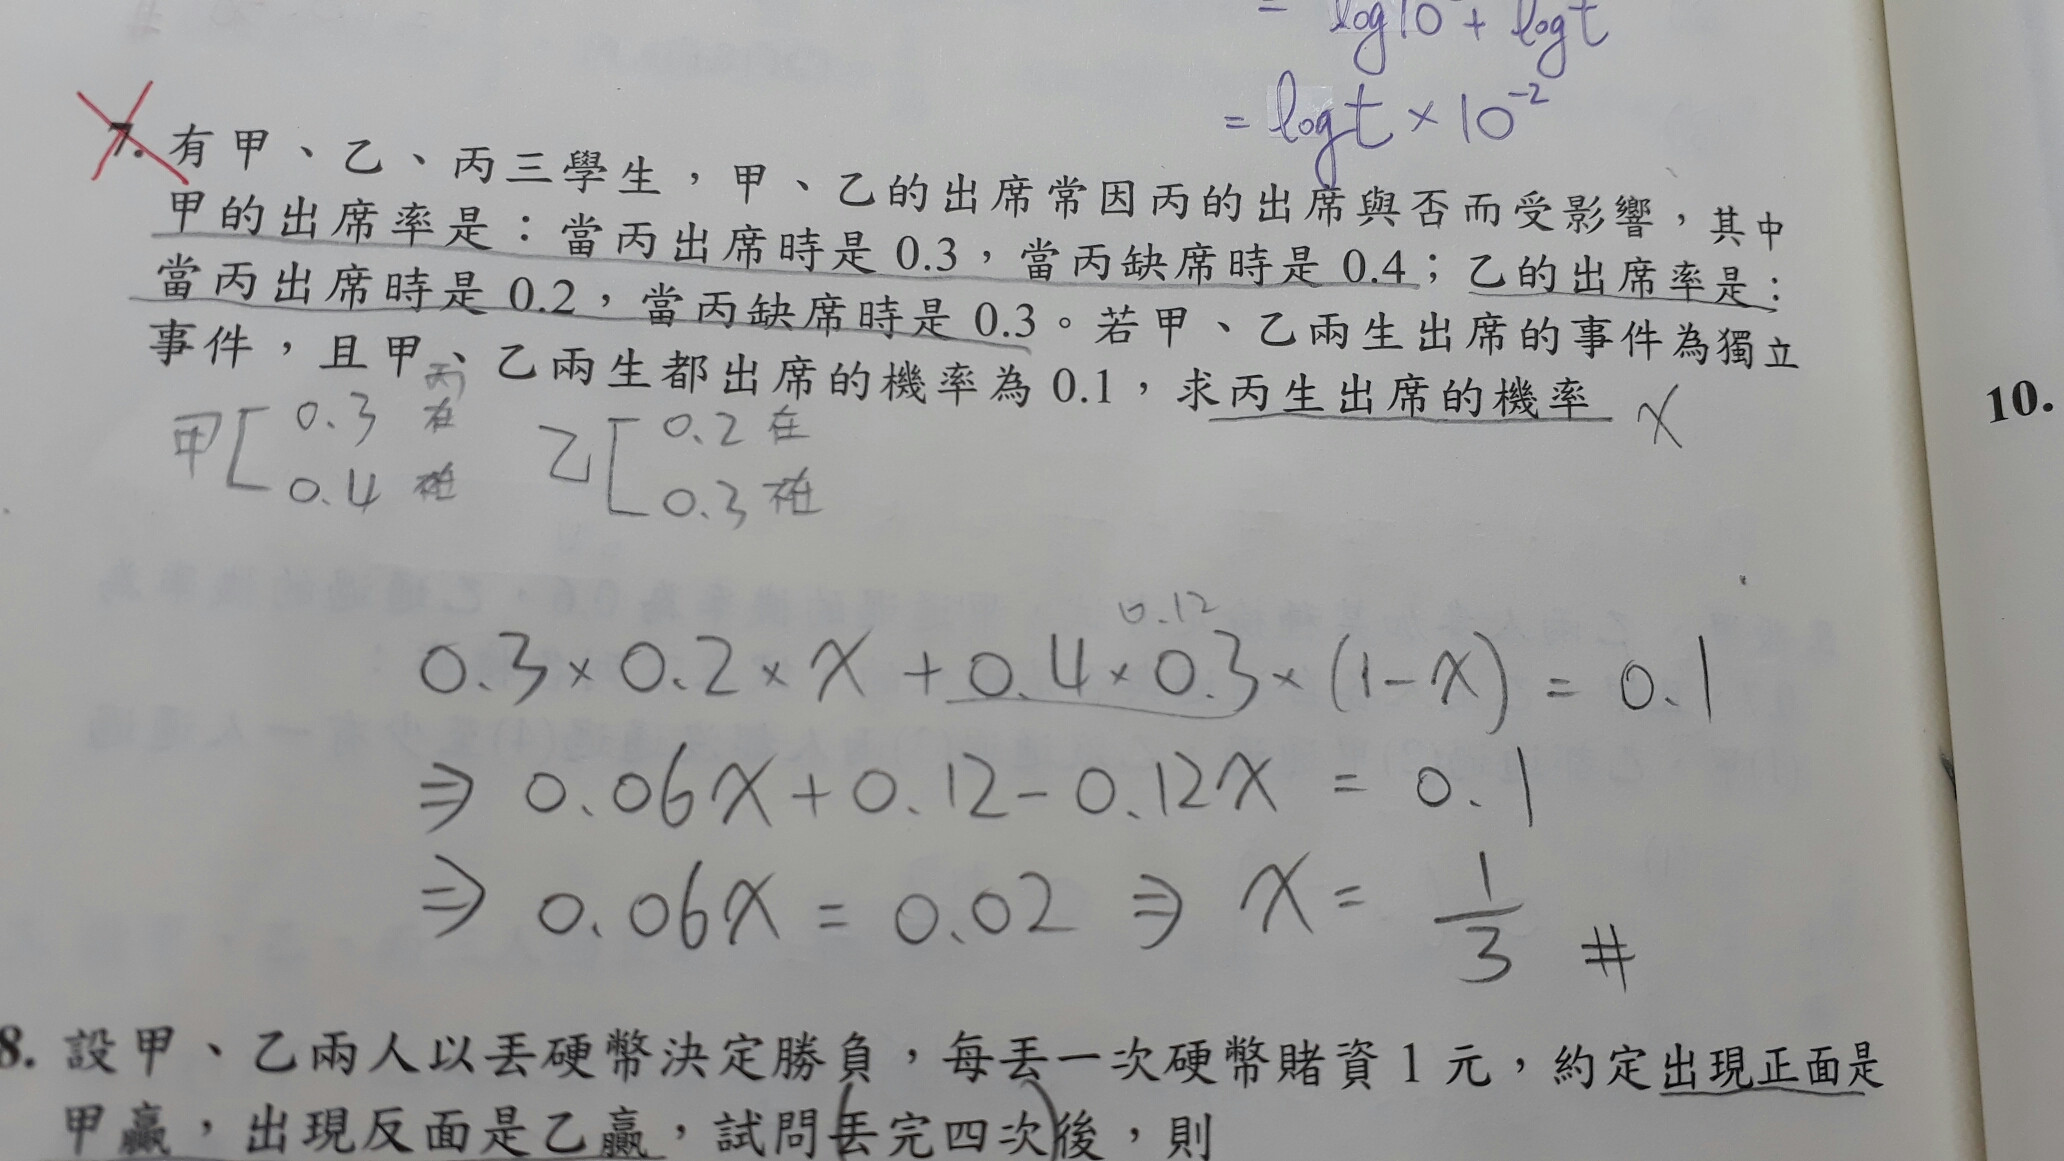 = log10 + logt
= logt × 10⁻²
7. 有甲、乙、丙三學生，甲、乙的出席常因丙的出席與否而受影響，其中
甲的出席率是：當丙出席時是 0.3，當丙缺席時是 0.4；乙的出席率是：
當丙出席時是 0.2，當丙缺席時是 0.3。若甲、乙兩生出席的事件為獨立
事件，且甲、乙兩生都出席的機率為 0.1，求丙生出席的機率 x
丙
甲 0.3 在 乙 0.2 在
0.4 0.3
0.12
0.3×0.2×x+0.4×0.3×(1-x) = 0.1
⇒ 0.06x+0.12-0.12x = 0.1
⇒ 0.06x = 0.02 ⇒ x = 1/3 #
8. 設甲、乙兩人以丟硬幣決定勝負，每丟一次硬幣賭資 1 元，約定出現正面是
甲贏，出現反面是乙贏，試問(丟完四次)後，則
10.